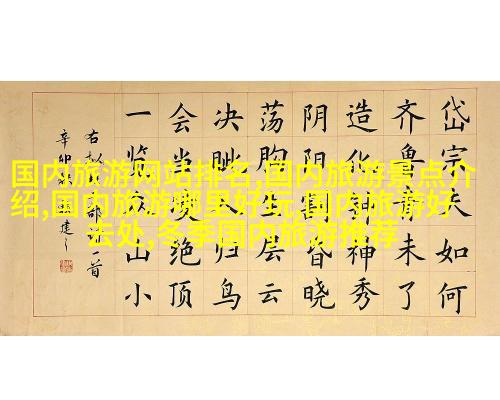 国内旅游网站排名,国内旅游景点介
绍,国内旅游哪里好玩,国内旅游好
去处,冬季国内旅游推荐
岱宗夫如何
齐鲁青未了
造化钟神秀
阴阳割昏晓
荡胸生层云
决眦入归鸟
会当凌绝顶
一览众山小
右一首
辛卯建